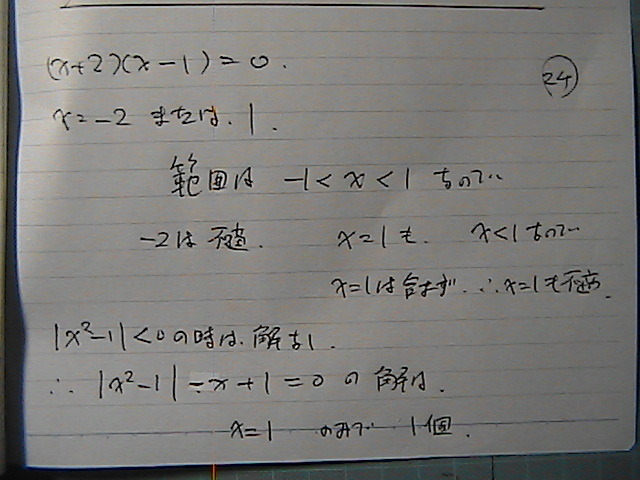 (x+2)(x-1)=0.
24
x=-2 または. 1.
範囲は -1<x<1 なので
-2は不適. x=1も. x<1なので
x=1は含まず. ∴x=1も不適.
|x²-1|<0の時は.解なし.
∴ |x²-1|-x+1=0 の 解は.
x=1 のみで 1個.